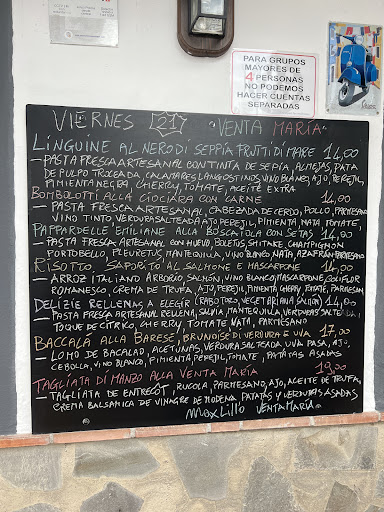 PARA GRUPOS
MAYORES DE
4 PERSONAS
NO PODEMOS
HACER CUENTAS
SEPARADAS
VIERNES 21 "VENTA MARÍA"
LINGUINE AL NERO DI SEPPIA FRUTTI DI MARE 14,00
- PASTA FRESCA ARTESANAL CON TINTA DE SEPIA, ALMEJAS, PATA
DE PULPO TROCEADA, CALAMARES LANGOSTINOS, VINO BLANCO, AJO, PEREJIL,
PIMIENTA NEGRA CHERRY, TOMATE, ACEITE EXTRA
BOMBOLOTTI ALLA CIOCIARA CON CARNE 14,00
- PASTA FRESCA ARTESANAL, CABEZADA DE CERDO, POLLO, PARMESANO
VINO TINTO VERDURA SALTEADA AJO PEREJIL, PIMIENTA NATA TOMATE,
PAPPARDELLE EMILIANE ALLA BOSCAIOLA CON SETAS 14,00
- PASTA FRESCA ARTESANAL CON HUEVO, BOLETUS, SHITAKE, CHAMPIGNON
PORTOBELLO, PLEUROTUS, MANTEQUILLA, VINO BLANCO, NATA, AZAFRÁN PARMESANO
RISOTTO SAPORITO AL SALMONE E MASCARPONE 14,00
- ARROZ ITALIANO ARBORIO SALMÓN, VINO BLANCO, MASCARPONE, COLIFLOR
ROMANESCO CREMA DE TRUFA, AJO, PEREJIL PIMIENTA, CHERRY, TOMATE, PARMESAN
DELIZIE RELLENAS A ELEGIR (RABO TORO, VEGETARIANA SALMÓN) 14,00
- PASTA FRESCA ARTESANAL RELLENA, SALVIA, MANTEQUILLA, VERDURAS SALTE
TOQUE DE CÍTRICO, CHERRY, TOMATE NATA, PARMESANO
BACCALA ALLA BARESE, BRUNOISE DI VERDURA E UVA 17,00
- LOMO DE BACALAO, ACEITUNAS, VERDURA SALTEADA UVA PASA, AJO,
CEBOLLA, VINO BLANCO, PIMIENTA, PEREJIL, TOMATE, PATATAS ASADAS
TAGLIATA DI MANZO ALLA VENTA MARÍA 19,00
- TAGLIATA DE ENTRECÔT, RUCOLA, PARMESANO, AJO, ACEITE DE TRUFA,
CREMA BALSAMICA DE VINAGRE DE MODENA PATATAS Y VERDURAS ASADAS
Max Lillo VENTA MARÍA